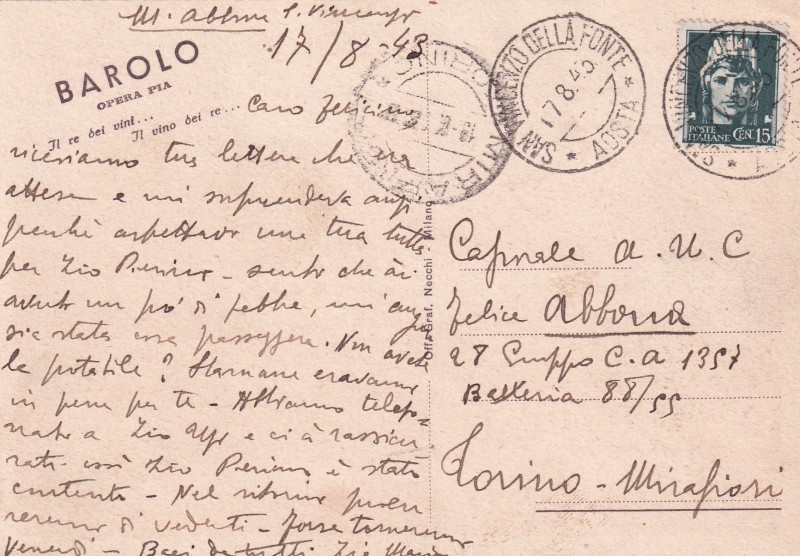 M. Abbona S. Vincenzo
17/8-43
BAROLO
OPERA PIA
Il re dei vini...
Il vino dei re...
Caro Felicino
riceviamo tua lettera che era
attesa e mi sorprendeva anzi
perchè aspettavo una tua
per Zio Pierino - sento che ài
avuto un pó di febbre, mi auguro
sia stata cosa passeggera. Non avete
la potabile? Stamane eravamo
in pena per te - Abbiamo telefo-
nato a Zio e ci à rassicu
rati così Zio Pierino è stato
contento - Nel ritorno
di vederti - Forse torneremo
Venerdì - Baci da tutti Zia Maria
SAN VINCENZO DELLA FONTE * AOSTA *
17.8.43
TORINO MIRAFIORI
POSTE ITALIANE
CEN. 15
SAN VINCENZO DELLA FONTE * AOSTA *
Off. Graf. Necchi - Milano
Caporale A. U. C
Felice Abbona
28 Gruppo C. A 1357
Batteria 88/55
Torino - Mirafiori